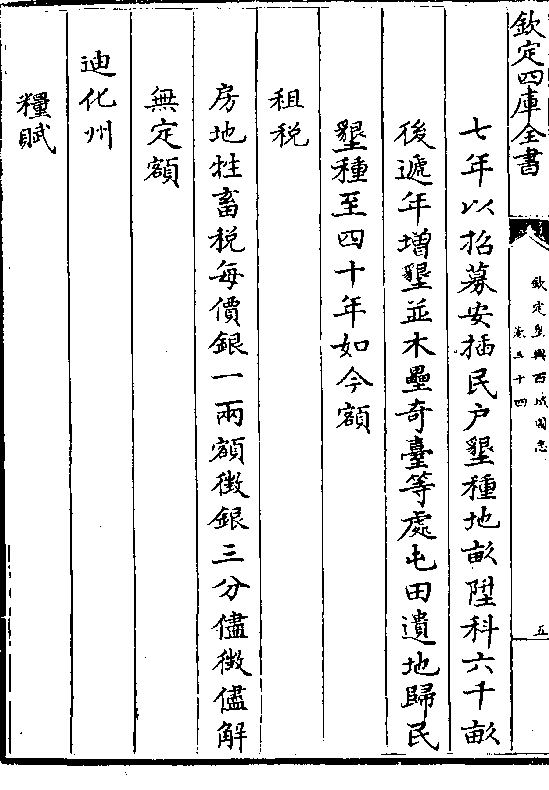 欽定四庫全書
欽定皇輿西域圖志
卷三十四
五
七年以招募安插民户墾種地畝陞科六千畝
後遞年增墾並木壘奇臺等處屯田遺地歸民
墾種至四十年如今額
租税
房地牲畜税每價銀一兩額徵銀三分儘徵儘解
無定額
迪化州
糧賦